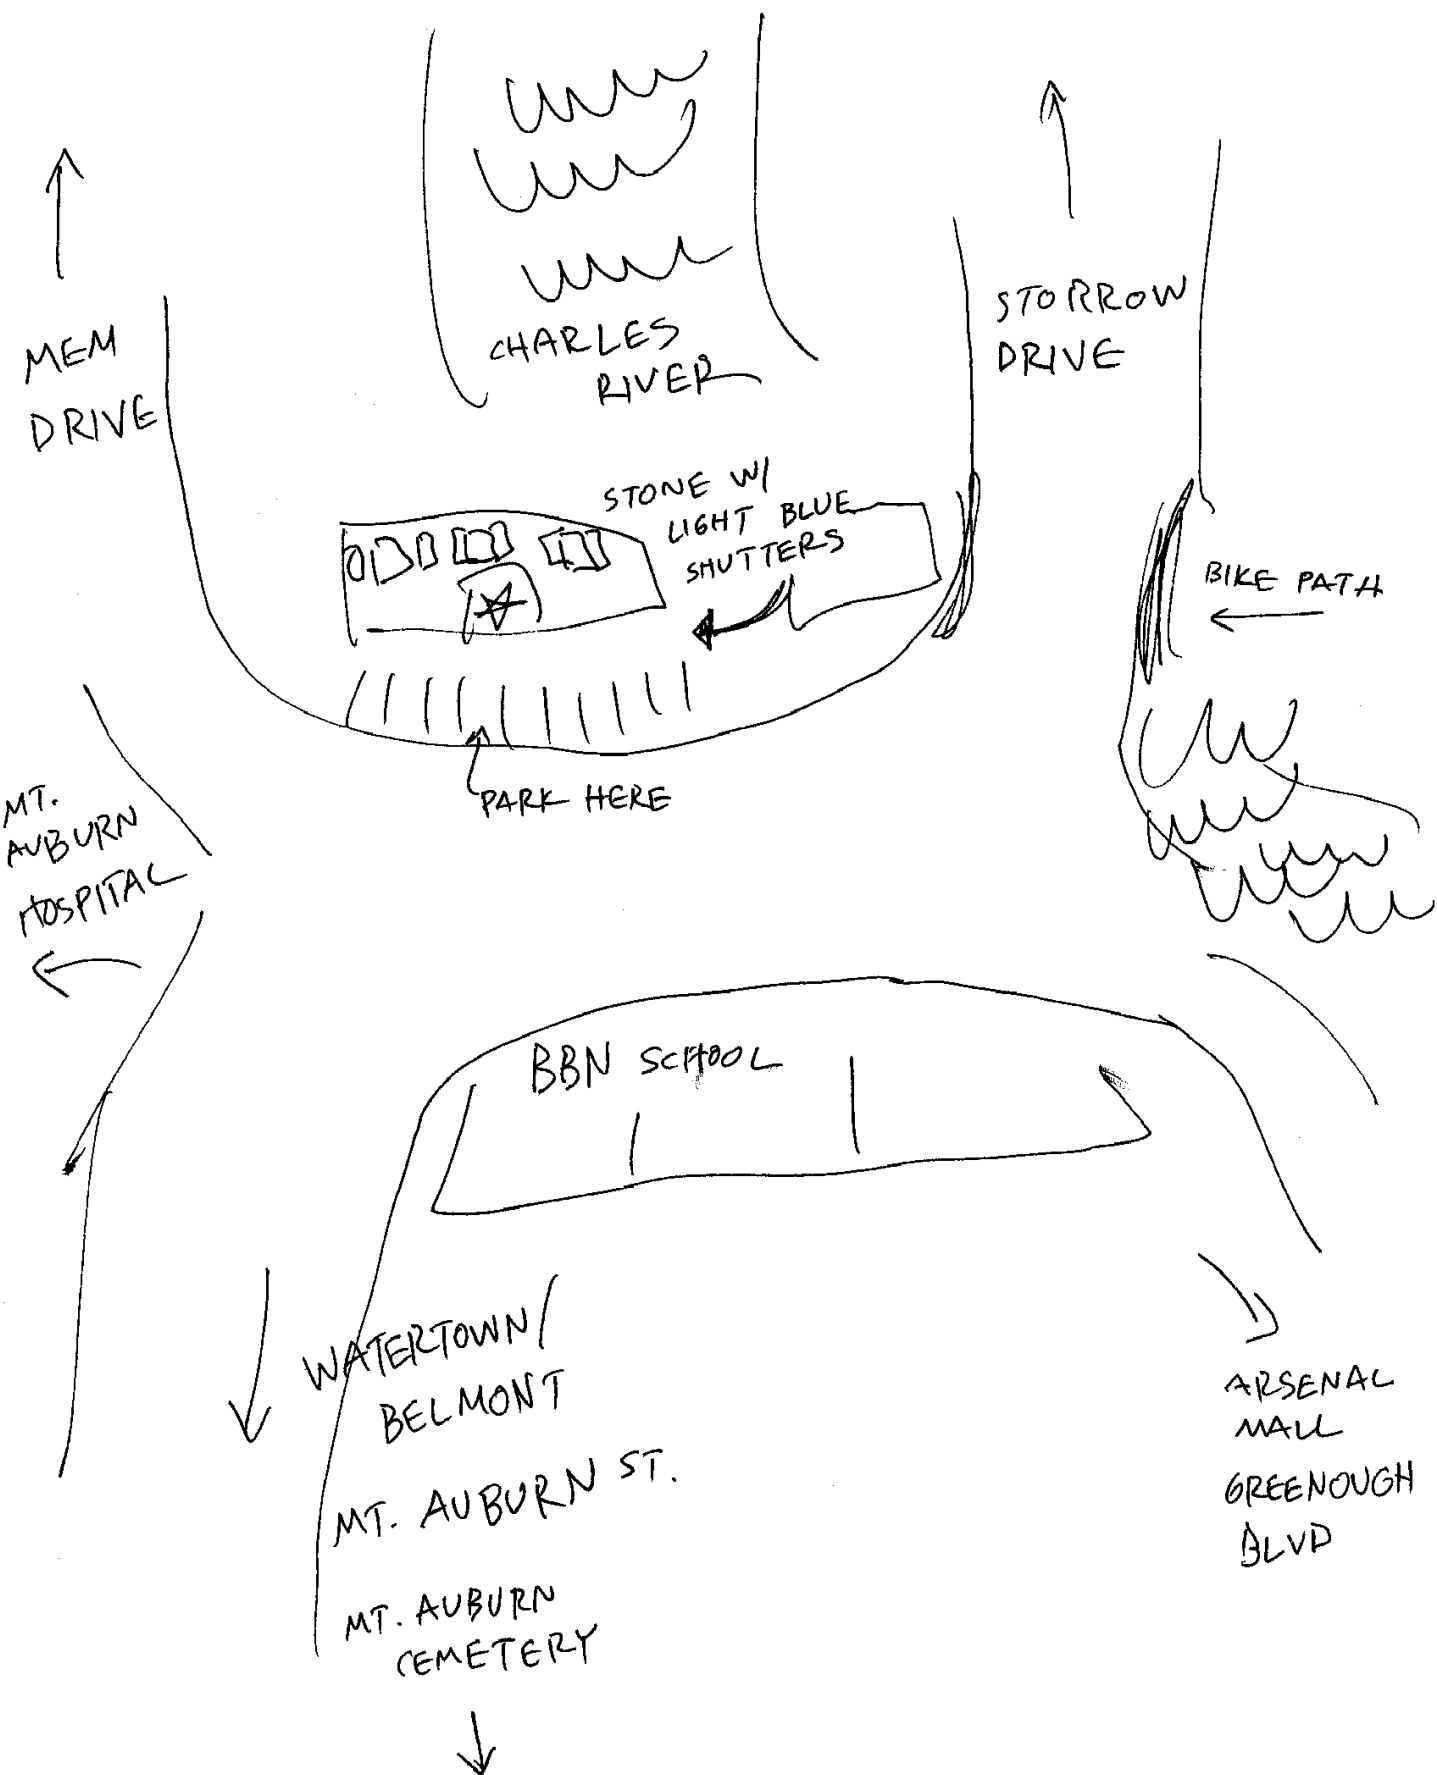 MEM
DRIVE
CHARLES
RIVER
STORROW
DRIVE
STONE W/
LIGHT BLUE
SHUTTERS
BIKE PATH
PARK HERE
MT.
AUBURN
HOSPITAL
BBN SCHOOL
WATERTOWN/
BELMONT
MT. AUBURN ST.
MT. AUBURN
CEMETERY
ARSENAL
MALL
GREENOUGH
BLVD